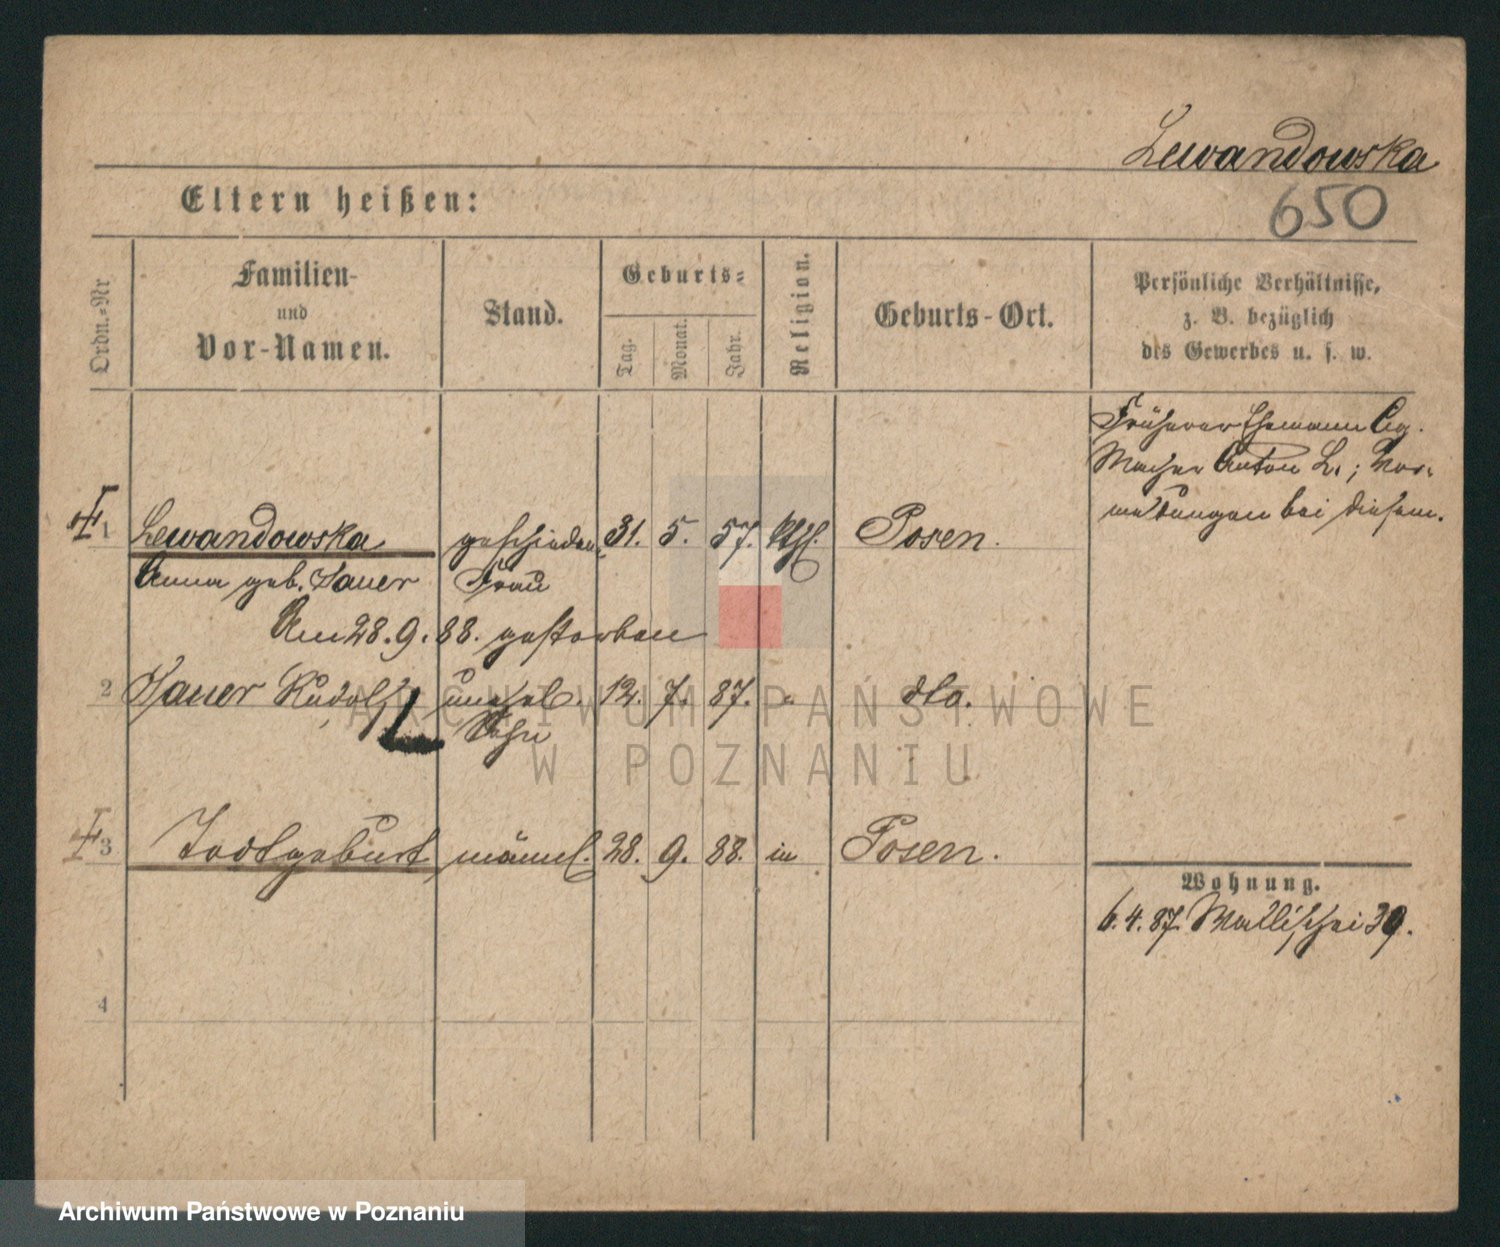 Lewandowska
650
Eltern heißen:
Ordn.-Nr
Familien-
und
Vor-Namen.
Stand.
Geburts-
Tag.
Monat.
Jahr.
Religion.
Geburts-Ort.
Persönliche Verhältnisse,
z. B. bezüglich
des Gewerbes u. s. w.
Früherer Ehemann Cig.
Macher Anton L.; Vor-
meldungen bei diesem.
1 Lewandowska geschiedene 31. 5. 57. kth. Posen.
Anna geb. Sauer Frau
Am 28. 9. 88. gestorben
2 Sauer Rudolf unehel. 12. 7. 87. " dto.
L Sohn
ARCHIWUM PAŃSTWOWE
W POZNANIU
3 Todtgeburt männl. 28. 9. 88. in Posen.
Wohnung.
6. 4. 87. Wallischei 39.
4
Archiwum Państwowe w Poznaniu